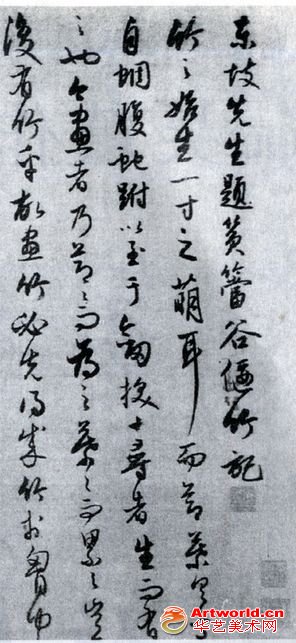 東坡先生題篔簹谷偃竹記
竹之始生一寸之萌耳而節葉具焉
自蜩腹蛇蚹以至于劍拔十尋者生而有
之也今畫者乃節節而為之葉葉而累之豈
復有竹乎故畫竹必先得成竹於胸中
Artworld.cn
华艺美术网